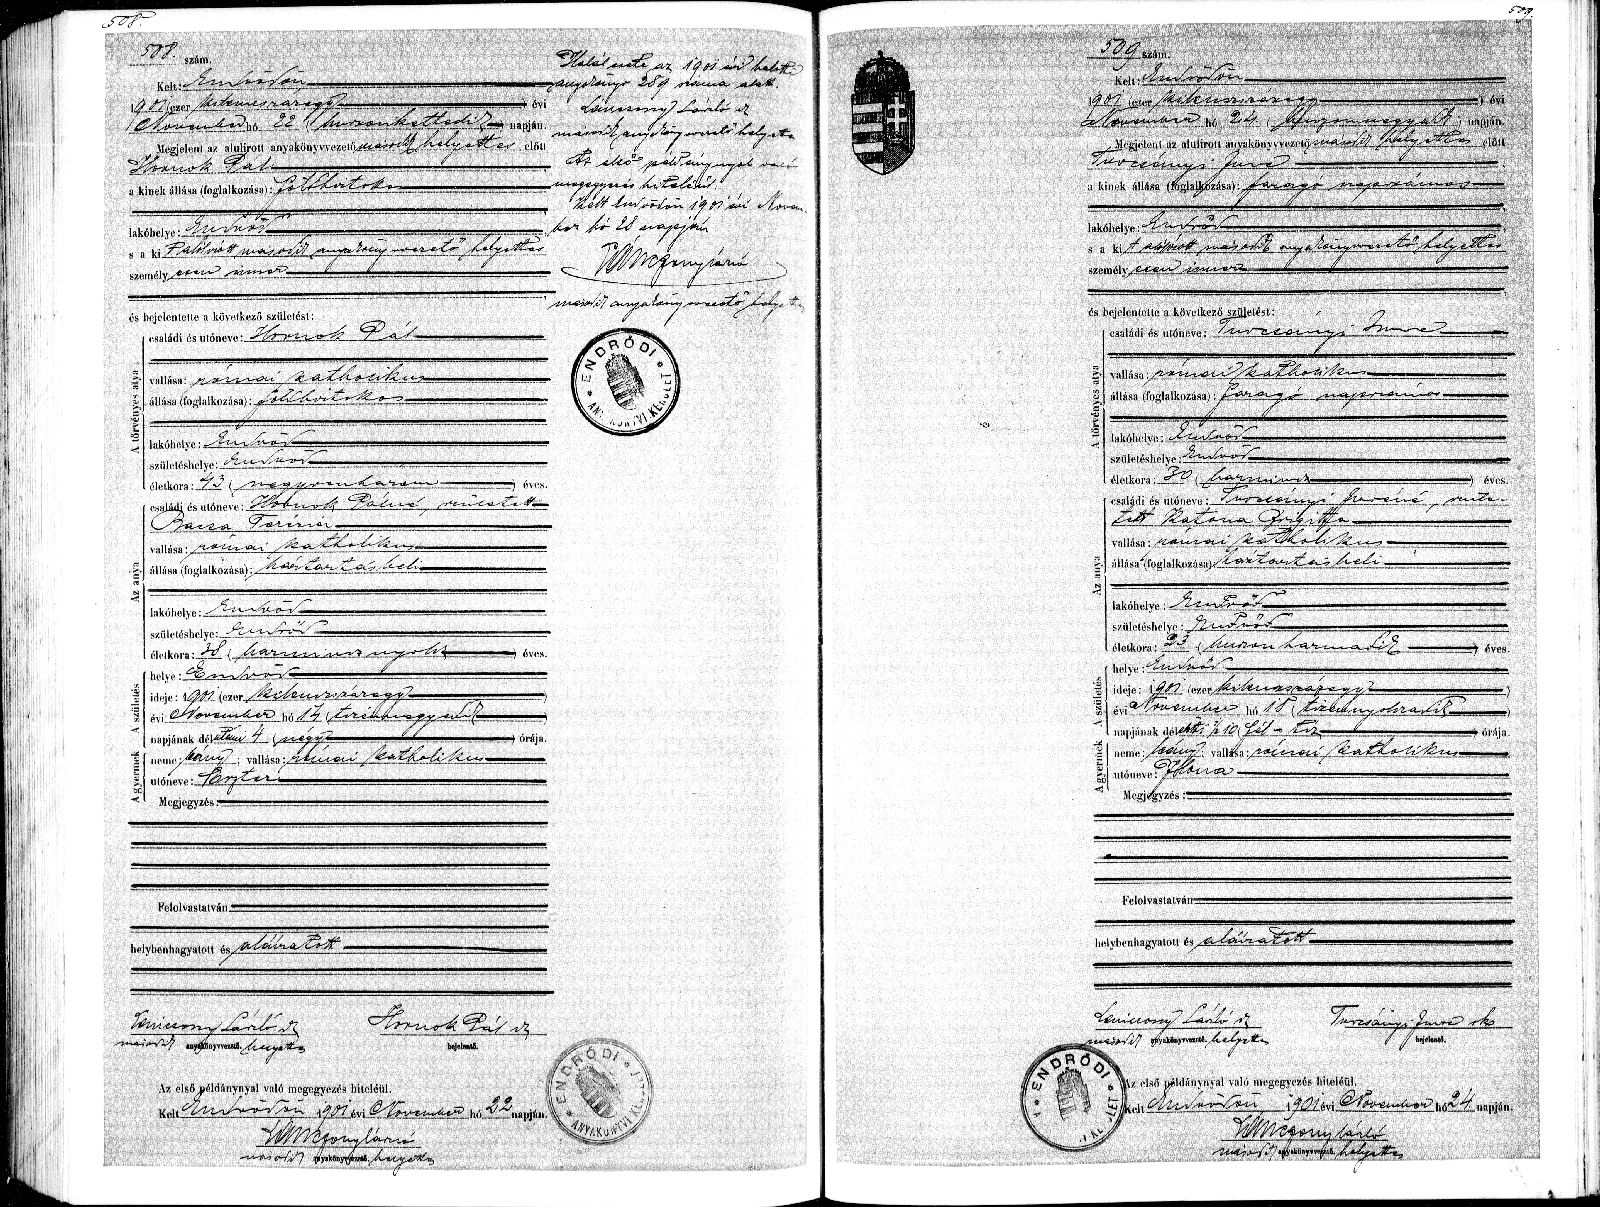 508.
508. szám.
Kelt: Endrődön,
1901 (ezer kilenczszázegy) évi
November hó 22 (huszonkettedik) napján.
Megjelent az alulirott anyakönyvvezető második helyettes előtt
Hornok Pál
a kinek állása (foglalkozása): földbirtokos
lakóhelye: Endrőd
s a ki alólírott második anyakönyvvezető helyettes
személyesen ismer
és bejelentette a következő születést:
A törvényes atya
családi és utóneve: Hornok Pál
vallása: római katholikus
állása (foglalkozása): földbirtokos
lakóhelye: Endrőd
születéshelye: Endrőd
életkora: 43 (negyvenhárom) éves.
Az anya
családi és utóneve: Hornok Pálné, született
Bacsa Terézia
vallása: római katholikus
állása (foglalkozása): háztartásbeli
lakóhelye: Endrőd
születéshelye: Endrőd
életkora: 38 (harmincznyolcz) éves.
A gyermek A születés
helye: Endrőd
ideje: 1901 (ezer kilenczszázegy)
évi November hó 14 (tizennegyedik)
napjának délutáni 4 (négy) órája.
neme: leány; vallása: római katholikus
utóneve: Eszter
Megjegyzés:
Felolvastatván
helybenhagyatott és aláiratott
Lánczsony László sk Hornok Pál sk
második anyakönyvvezető. helyettes bejelentő.
Az első példánynyal való megegyezés hiteléül.
Kelt Endrődön 1901 évi November hó 22 napján.
második anyakönyvvezető. helyettes
Halálesete az 1901 évi halotti
anyakönyv 289 száma alatt.
László sk
második anyakönyvvezető helyettes
Az első példánynyal való
megegyezés hiteléül.
Kelt Endrődön 1901 évi Novem
ber hó 28 napján
második anyakönyvvezető helyettes
ENDRŐDI ANYAKÖNYVI KERÜLET
ENDRŐDI ANYAKÖNYVI KERÜLET
509.
509 szám.
Kelt: Endrődön
1901 (ezer kilenczszázegy) évi
November hó 24 (huszonnegyedik) napján.
Megjelent az alulirott anyakönyvvezető második helyettes előtt
Turcsányi Imre
a kinek állása (foglalkozása): faragó napszámos
lakóhelye: Endrőd
s a ki alólírott második anyakönyvvezető helyettes
személyesen ismer
és bejelentette a következő születést:
A törvényes atya
családi és utóneve: Turcsányi Imre
vallása: római katholikus
állása (foglalkozása): faragó napszámos
lakóhelye: Endrőd
születéshelye: Endrőd
életkora: 30 (harmincz) éves.
Az anya
családi és utóneve: Turcsányi Imréné, szüle-
tett Katona Brigitta
vallása: római katholikus
állása (foglalkozása): háztartásbeli
lakóhelye: Endrőd
születéshelye: Endrőd
életkora: 23 (huszonharmadik) éves.
A gyermek A születés
helye: Endrőd
ideje: 1901 (ezer kilenczszázegy)
évi November hó 18 (tizennyolczadik)
napjának délelőtti ½10 fél-tíz órája.
neme: leány; vallása: római katholikus
utóneve: Ilona
Megjegyzés:
Felolvastatván
helybenhagyatott és aláiratott
László sk Turcsányi Imre sk
második anyakönyvvezető. helyettes bejelentő.
ENDRŐDI KERÜLET
Az első példánynyal való megegyezés hiteléül.
Kelt Endrődön 1901 évi November hó 24 napján.
második anyakönyvvezető. helyettes